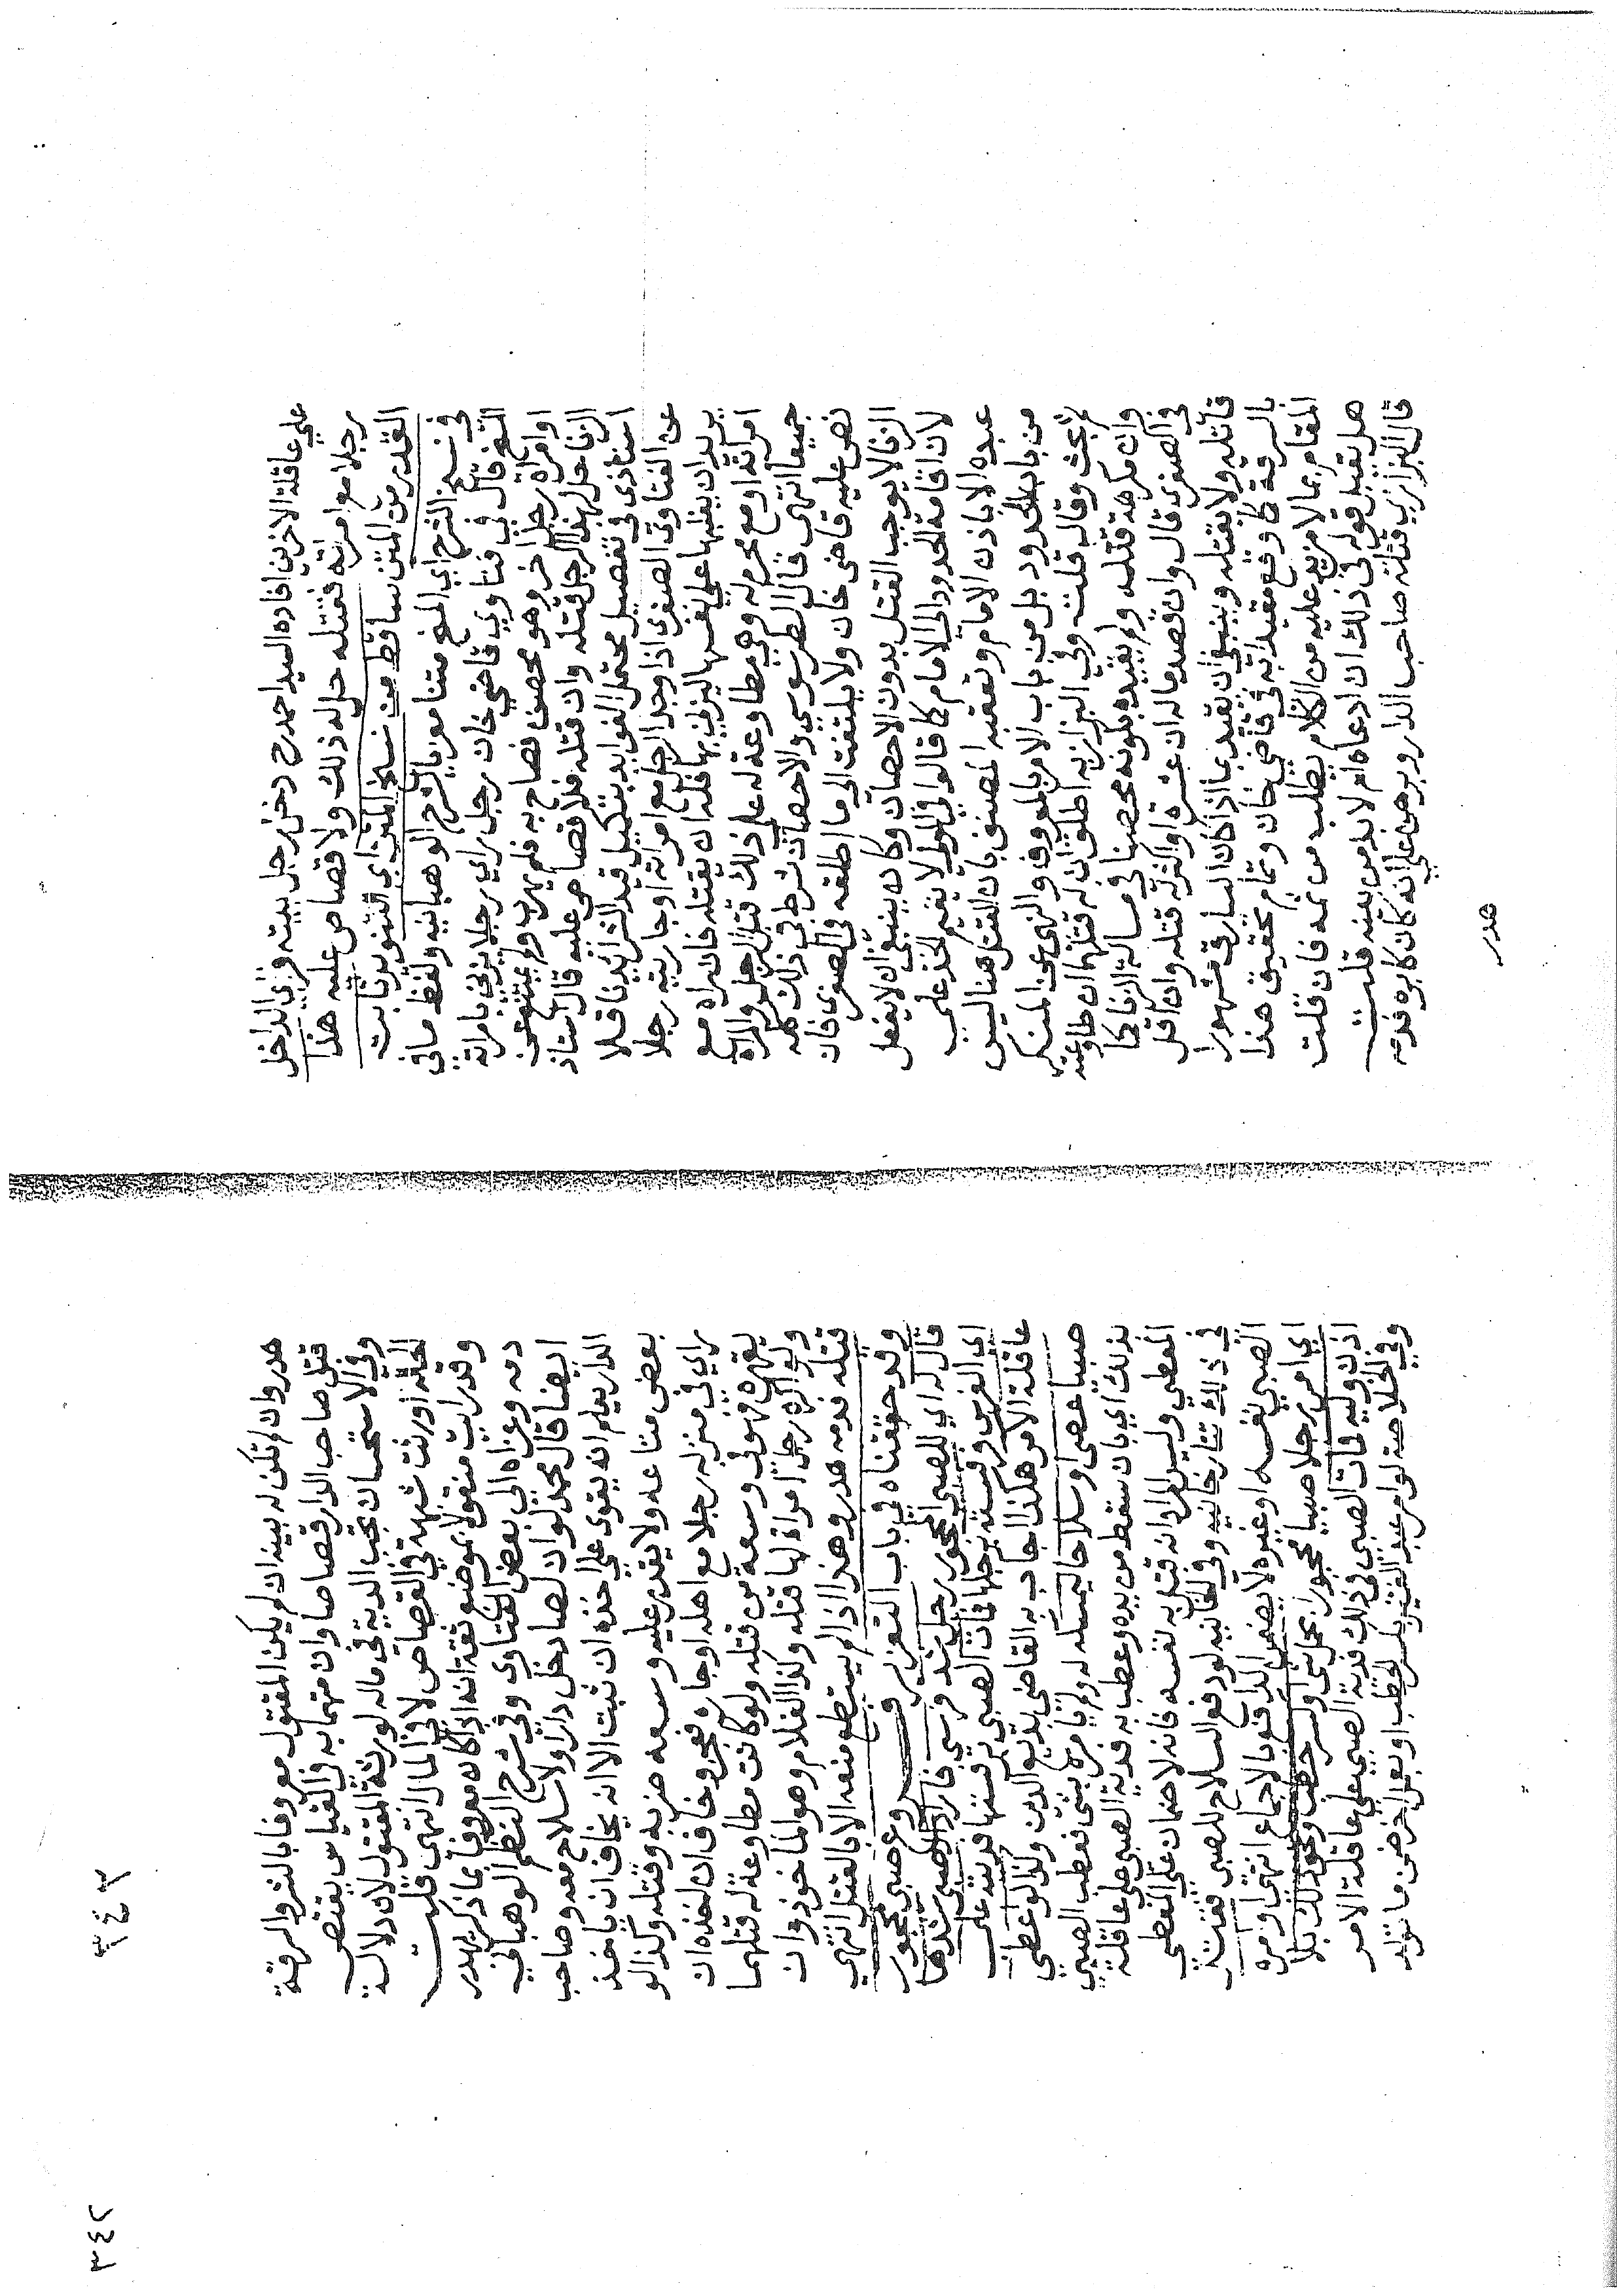 علي عاقلة الاخرين افاده السيد احمد رح دخل رجل بيته فراي الداخل
رجلا مع امراته فقتله حل له ذلك ولا قصاص عليه هذا
القدر من المتن ساقط من نسخ المتن اي التنوير ثابت
في نسخ الشرح اي المنح متنا معزيا لشرح الوهبانيه ولفظ ما في
المنح قال في فتاوي قاضي خان رجل راي رجلا يزني بامراته
او امراة رجل اخر وهو محصن فصاح به فلم يهرب ولم يمتنع عن
الزنا حل لهذا الرجل قتله وان قتله فلا قصاص عليه قال استاذ
استاذي في تفصيل محتمل الفوايد بتكميل قيد الشرايد ناقلا
عن الفتاوى الصغرى اذا وجد الرجل مع امراته او جاريته رجلا
يريد ان يغلبها علي نفسها ليزني بها فله ان يقتله فان راه مع
امراته او مع محرم له وهي مطاوعة له علي ذلك قتل الرجل والمراة
جميعا انتهي قال الطرسوسي والاحصان شرط في ذلك كله
نص عليه قاضي خان ولا يلتفت الي ما اطلقه في الصغرى فان
الزنا لا يوجب القتل بدون الاحصان وكان ينبغي ان لا يفعل
لان اقامة الحدود الي الامام كما قالوا في المولي لا يقيم الحد علي
عبده الا باذن الامام وتعقبه المصنف بان القتل هنا ليس
من باب الحدود بل من باب الامر بالمعروف والنهي عن المنكر
ثم بحث وقال قلت وفي البزازيه اطلق ان له قتلهما ان طاوعته
وان مكرهة قتله ولم يقيده بكونه محصنا في مسالة الزنا كما
في الصغرى قال وان قصد ماله ان عشرة او اكثر له قتله وان اقل
قاتله ولا يقتله وينبغي ان يقيد بما اذا كان السارق مشهورا
بالسرقة كما وقع مقيدا به في قاضي خان وتمام تحقيق هذا
المقام بما لا مزيد عليه من الكلام يطلب من ثمه فان قلت
هل يقبل قوله في ذلك ان ادعاه ام لا بد من بينه قلت
قال البزازي قتله صاحب الدار وبرهن علي انه كان كابره فدمه
هدر
هدر وان لم تكن له بينة ان لم يكن المقتول معروفا بالشر والسرقة
قتل صاحب الدار قصاصا وان متهما به في القياس يقتص
وفي الاستحسان تجب الدية في ماله لورثة المقتول لان دلالة
الحال اورثت شبهة في القصاص لا في المال انتهي قلت
وقد رايت منقولا بموضع ثقة انه اذا كان معروفا بما ذكر يهدر
دمه وعزاه الي بعض الفتاوي وفي شرح النظم الوهباني
ايضا قال محمد لو ان لصا دخل دارا ولا سلاح معه وصاحب
الدار يعلم انه يقوى علي اخذه ان ثبت الا انه يخاف ان ياخذ
بعض متاعه ولا يقدر عليه وسعه ضربه وقتله وكذا لو
راي في منزله رجلا مع اهله او جاره يفجر وخاف ان اخذه ان
يقهره فهو في سعة من قتله ولو كانت مطاوعة له قتلهما
ولو اكره رجل امراة لها قتله وكذا الغلام وهو الماخوذ وان
قتله فدمه هدر وهذا اذا لم يستطع منعه الا بالقتل انتهي
وقد حققناه في باب التعزير فروع صبي محجور
قال له اي للصبي المحجور رجل شد فرسي فاراد الصبي شدها
اي الفرس فرفسته برجلها فمات الصبي من رفستها فديته علي
عاقلة الامر هكذا اجاب به القاضي بديع الدين وكذا لو اعطي
صبيا عصي او سلاحا ليمسكه له ولم يامره بشئ فعطب الصبي
بذلك اي بان سقط من يده وعطب به فدية الصبي علي عاقلة
المعطي وليس المراد انه قتل به نفسه فانه لا ضمان علي المعطي
في ذلك تتارخانيه وفي الخانيه لو دفع السلاح للصبي فقتل
الصبي نفسه او غيره لا يضمن الدافع بالاجماع انتهي او امره
اي امر رجلا صبيا محجورا بحمل شئ او كسر حطب ونحو ذلك بلا
اذن وليه فمات الصبي في ذلك فدية الصبي علي عاقلة الامر
وفي الخلاصة لو امر عبد الغير بكسر الحطب او بعمل اخر ضمن ما تولد
٣٤٢